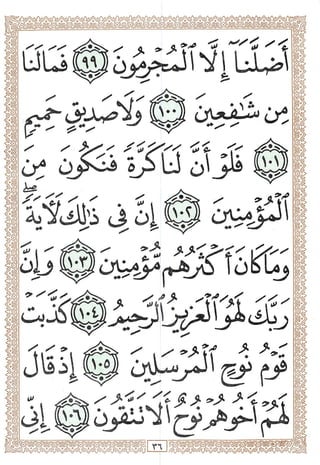 أَضَلَّنَآ إِلَّا ٱلْمُجْرِمُونَ ٩٩ فَمَالَنَا
مِن شَٰفِعِينَ ١٠٠ وَلَا صَدِيقٍ حَمِيمٍ
١٠١ فَلَوْ أَنَّ لَنَا كَرَّةً فَنَكُونَ مِنَ
ٱلْمُؤْمِنِينَ ١٠٢ إِنَّ فِى ذَٰلِكَ لَءَايَةً ۖ
وَمَا كَانَ أَكْثَرُهُم مُّؤْمِنِينَ ١٠٣ وَإِنَّ
رَبَّكَ لَهُوَ ٱلْعَزِيزُ ٱلرَّحِيمُ ١٠٤ كَذَّبَتْ
قَوْمُ نُوحٍ ٱلْمُرْسَلِينَ ١٠٥ إِذْ قَالَ
لَهُمْ أَخُوهُمْ نُوحٌ أَلَا تَتَّقُونَ ١٠٦ إِنِّى
٣٦